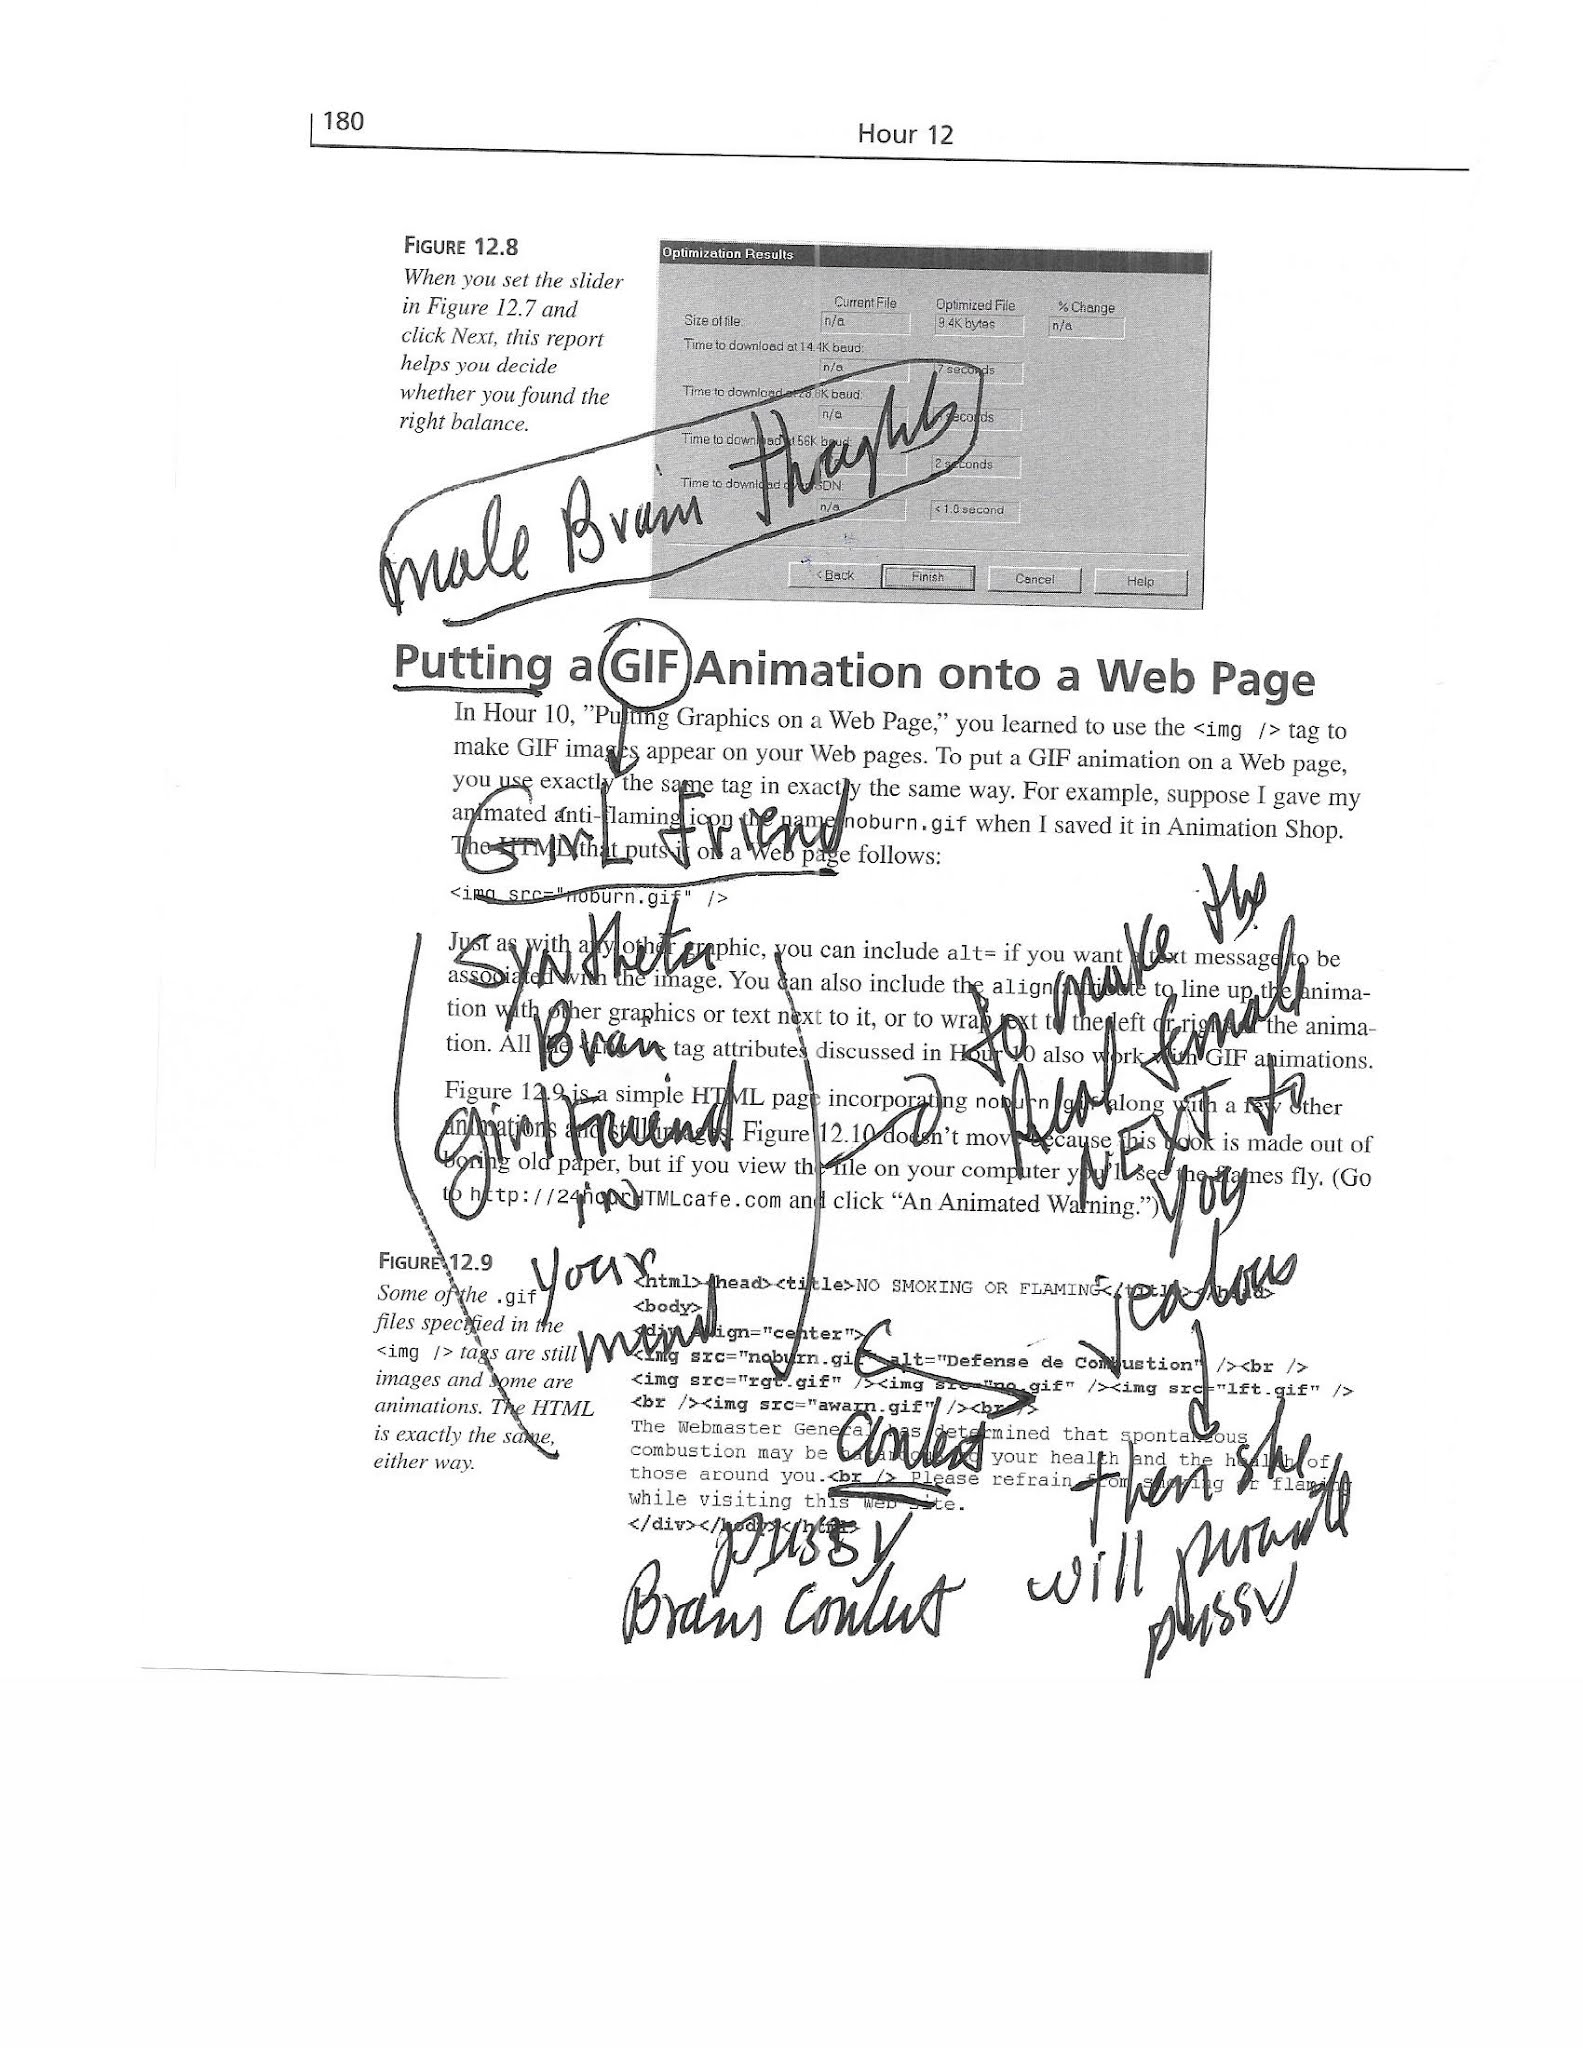 180
Hour 12
FIGURE 12.8
When you set the slider
in Figure 12.7 and
click Next, this report
helps you decide
whether you found the
right balance.
Optimization Results
Current File Optimized File % Change
Size of file: n/a 9.4K bytes n/a
Time to download at 14.4K baud:
n/a 7 seconds
Time to download at 28.8K baud:
n/a seconds
Time to download at 56K baud:
2 seconds
Time to download over ISDN:
n/a < 1.0 second
< Back Finish Cancel Help
male Brain thoughts
Putting a GIF Animation onto a Web Page
In Hour 10, "Putting Graphics on a Web Page," you learned to use the <img /> tag to
make GIF images appear on your Web pages. To put a GIF animation on a Web page,
you use exactly the same tag in exactly the same way. For example, suppose I gave my
animated anti-flaming icon the name noburn.gif when I saved it in Animation Shop.
The HTML that puts it on a Web page follows:
<img src="noburn.gif" />
Just as with any other graphic, you can include alt= if you want a text message to be
associated with the image. You can also include the align attribute to line up the anima-
tion with other graphics or text next to it, or to wrap text to the left or right of the anima-
tion. All the <img /> tag attributes discussed in Hour 10 also work with GIF animations.
Figure 12.9 is a simple HTML page incorporating noburn.gif along with a few other
animations and still images. Figure 12.10 doesn't move because this book is made out of
boring old paper, but if you view the file on your computer you'll see the flames fly. (Go
to http://24hourHTMLcafe.com and click "An Animated Warning.")
GirL Friend
Brain
girl Friend
in
your
mind
to make the
Real female
NEXT to
you
jealous
then she
will
pussy
Content
pussy
Brains Content
FIGURE 12.9
Some of the .gif
files specified in the
<img /> tags are still
images and some are
animations. The HTML
is exactly the same,
either way.
<html><head><title>NO SMOKING OR FLAMING</title></head>
<body>
<div align="center">
<img src="noburn.gif" alt="Defense de Combustion" /><br />
<img src="rgt.gif" /><img src="no.gif" /><img src="lft.gif" />
<br /><img src="awarn.gif" /><br />
The Webmaster General has determined that spontaneous
combustion may be hazardous to your health and the health of
those around you.<br /> Please refrain from smoking or flaming
while visiting this Web site.
</div></body></html>